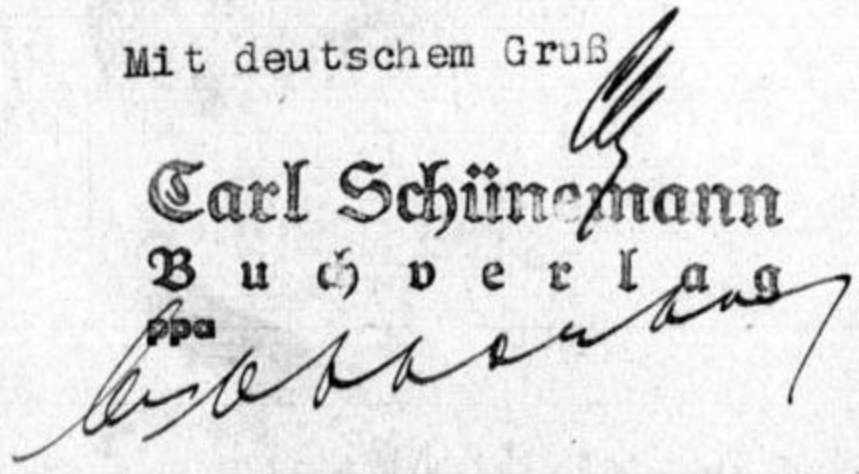 Mit deutschem Gruß
Carl Schünemann
Buchverlag
ppa